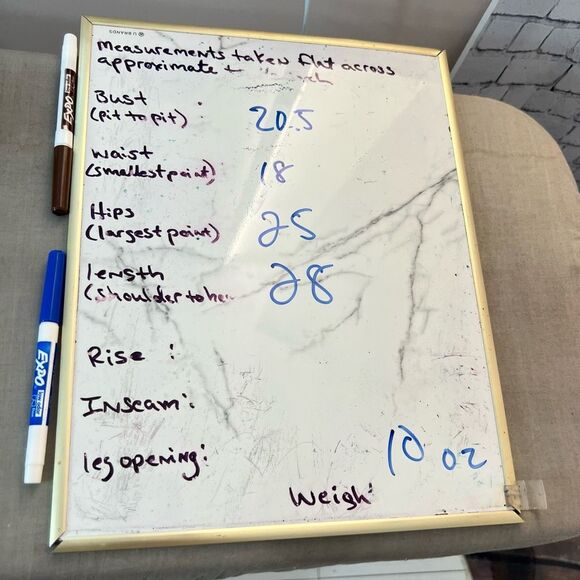 U BRANDS
measurements taken flat across
approximate t
Bust :
(pit to pit) 20.5
waist
(smallest point) 18
Hips
(largest point) 25
length
(shoulder to hem 28
Rise :
Inseam:
leg opening:
10 oz
Weigh
EXPO
EXPO